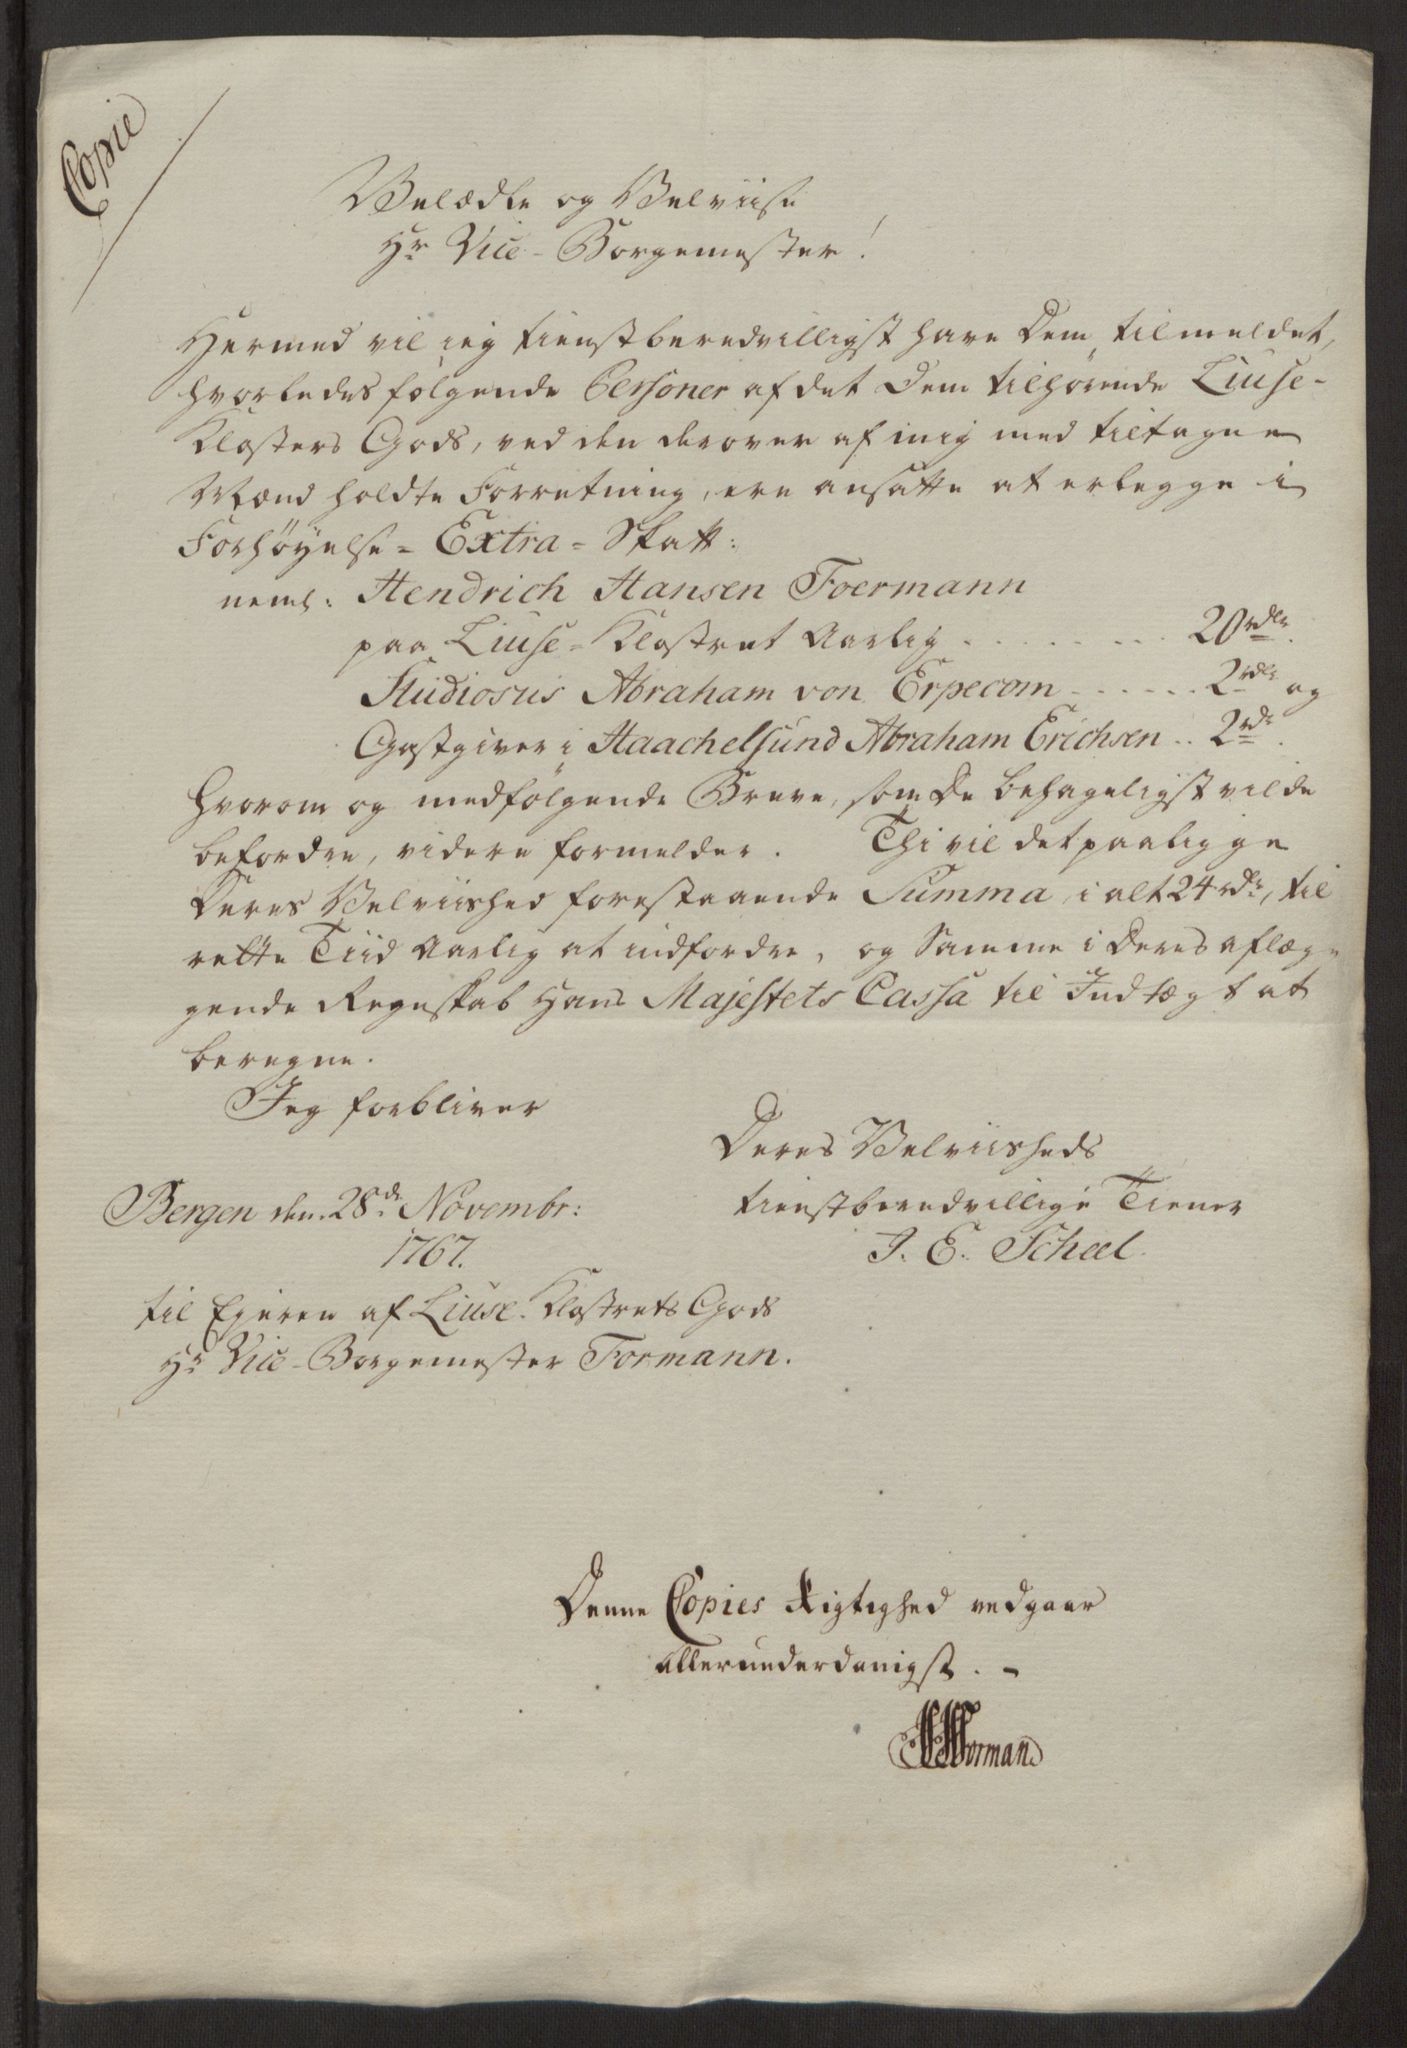 Copie
Velædle og Velviise
Hr Vice-Borgemester!
Hermed vil ieg tienstberedvilligst have Dem tilmeldet,
hvorledes følgende Personer af det Dem tilhørende Liuse-
Klosters Gods, ved den derover af mig med tiltagne
Mænd holdte Forretning, ere ansatte at erlegge i
Forhøyelse-Extra-Skatt:
neml: Hendrich Hansen Foermann
paa Liuse-Klostret Aarlig . . . . . . . . 20 rdlr.
Studiosus Abraham von Erpecom . . . . . . 2 rdlr og
Gastgiver i Haachelsund Abraham Erichsen . . 2 rdr.
hvorom og medfølgende Breve, som De behageligst vilde
befordre, videre formelder. Thi vil det paaligge
Deres Velviished forestaaende Summa, i alt 24 rdr, til
rette Tiid Aarlig at indfordre, og Samme i Deres aflæg-
gende Regnskab Hans Majestets Cassa til Indtægt at
beregne.
Jeg forbliver
Deres Velviisheds
tienstberedvillige Tiener
J. E. Scheel.
Bergen den 28de Novembr:
1767.
til Eyeren af Liuse-Klostrets Gods
Hr Vice-Borgemester Formann.
Denne Copies Rigtighed vedgaar
allerunderdanigst. -
Forman